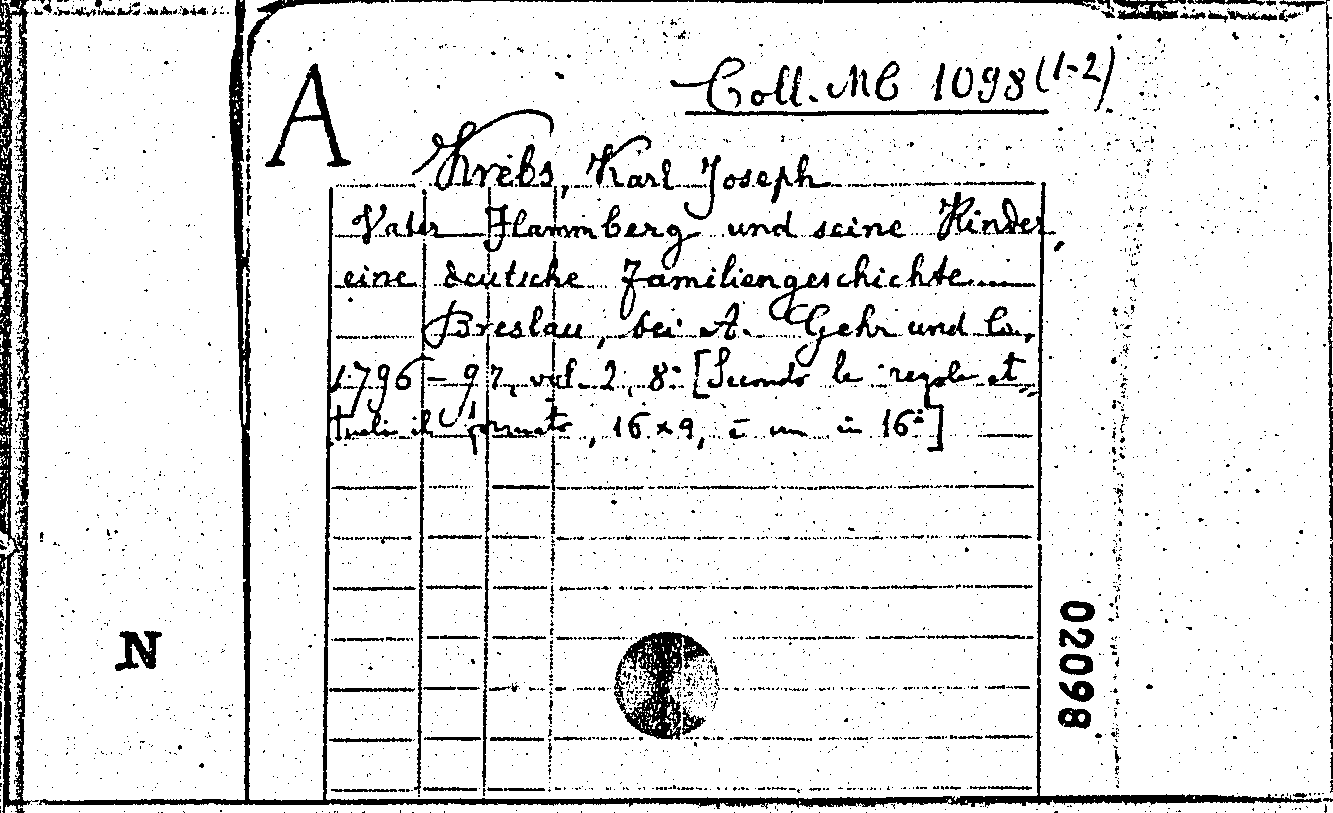 A
Coll. MC 1098 (1-2)
Krebs, Karl Joseph
Vater Flammberg und seine Kinder,
eine deutsche Familiengeschichte......
Breslau, bei A. Gehr und Co.,
1796-97, vol. 2, 8º [Secondo le regole at-
tuali il formato, 16 x 9, è un in 16º]
N
02098